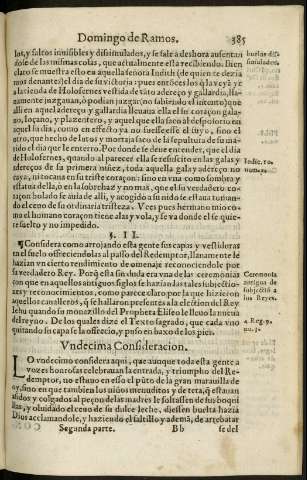 Domingo de Ramos. 385
los, y saltos inuisibles y dissimulados, y se sale a deshora ausentan
dose de las mismas cosas, que actualmente esta recibiendo. Bien
claro se muestra esto en aquella señora Iudith (de quien te dezia
mos denantes) el dia de su victoria: pues entonces los q̃ la veyã yr
a la tienda de Holofernes vestida de tãto adereço y gallardia, lla
namente juzganan, o podian juzgar (no sabiendo el intento) que
alli en aquel adereço y gallardia lleuaua ella el su coraçon gala-
no, loçano, y plazentero, y aquel que ella saco al desposorio en
aquel su dia, como en efecto ya no fuesse esse el suyo, sino el
otro, que hecho de lutos y mortaja saco de la sepultura de su ma-
rido el dia que le enterro. Por donde se dexe entender, que el dia
de Holofernes, quando al parecer ella se resuscito en las galas y
adereços de su primera nũez, toda aquella gala y adereço no to
caua, ni tocana en su triste coraçon: sino en vna como sombra y
estatua della, o en la sobrehaz y no mas, que el su verdadero co
raçon bolado se auia de alli, y acogido a su nido se estaua toman-
do el ceuo de su ordinaria tristeza. Veys pues hermano mio co-
mo el humano coraçon tiene alas y vola, y se va donde el se quie-
re suelto y no impedido.
§. II.
¶ Considera como arrojando esta gente sus capas y vestiduras
en el suelo ofreciendoselas al passo del Redemptor, llanamente le
hazian vn cierto rendimiento de omenaje reconociendole por
su verdadero Rey. Porq̃ esta sin duda era vna de las ceremonias
con que en aquellos antiguos siglos se hazian las tales subjectio-
nes y reconocimientos, como parece claro por lo que hizieron
aquellos caualleros, q̃ se hallaron presentes a la electiõ del Rey
Iehu quando su monezillo del Propheta Eliseo le lleuo la nueua
del reyno. De los quales dize el Texto sagrado, que cada vno
quitando su capa se la ofrecio, y puso en baxo de los pies.
Vndecima Consideracion.
LO vndecimo considera aqui, que aunque toda esta gente a
vozes honrosas celebrauan la entrada, y triumpho del Re-
demptor, no estuuo en esso el pũto de la gran marauilla de
oy, sino en que tambien los niños menuditos y de teta, q̃ estauan
asidos y colgados al peçon de las madres le soltassen de sus boqui
llas, y oluidado el ceuo de su dulce leche, diessen buelta hazia
Dios aclamandole, y haziendo el saltillo y ademã, de arrebatar
Segunda parte. Bb se del
huelas diss
simulados.
Iudic. 10.
num. 3.
Ceremonia
antigua de
subjectiõ a
los Reyes.
4. Reg. 9.
nu. 3.